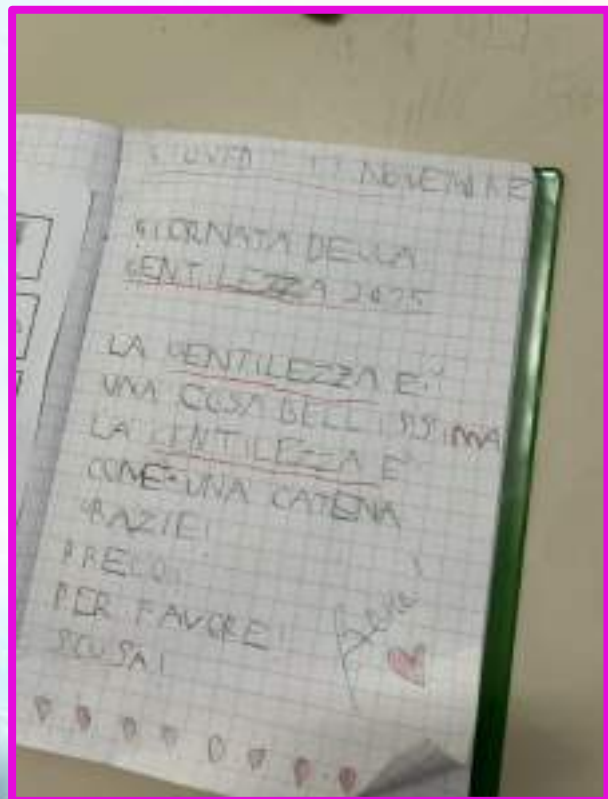 GIOVEDI 13 NOVEMBRE
GIORNATA DELLA
GENTILEZZA 2025
LA GENTILEZZA E'
UNA COSA BELLISSIMA
LA GENTILEZZA E'
COME UNA CATENA
GRAZIE!
PREGO!
PER FAVORE!
SCUSA!
Bene!